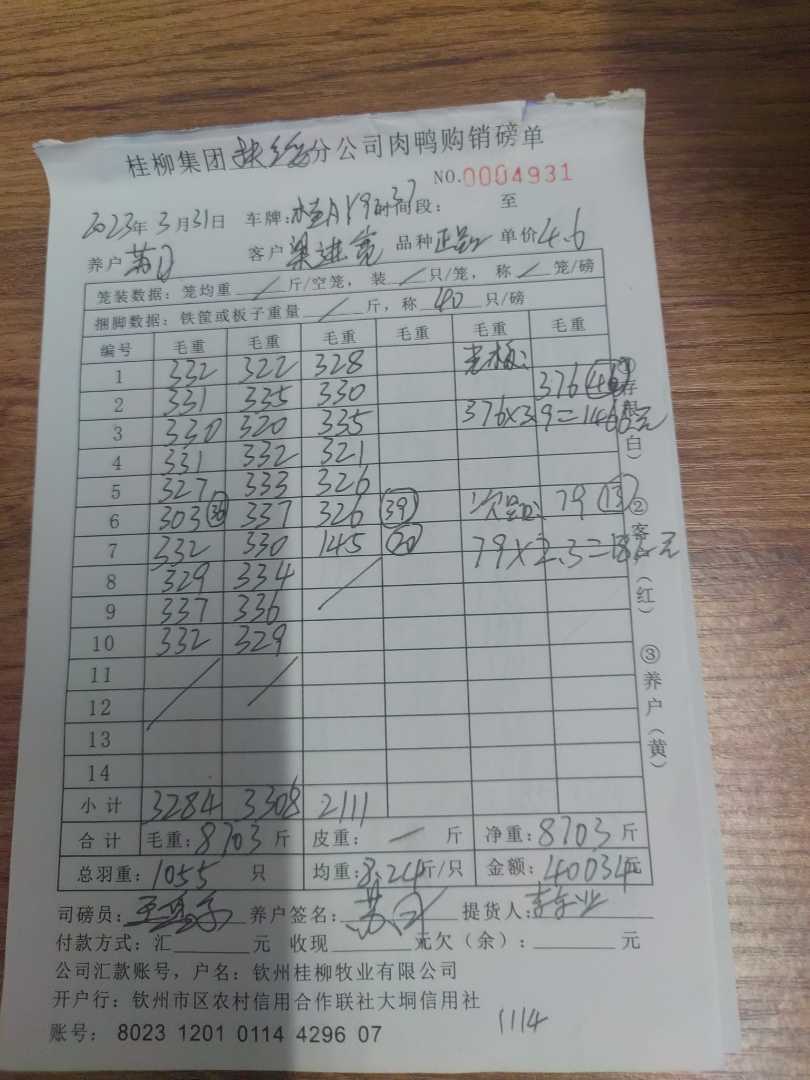 桂柳集团 分公司肉鸭购销磅单
NO.0004931
2023年3月31日 车牌:桂A 时间段: 至
养户 苏 客户 梁进 品种 正品 单价4.6
笼装数据：笼均重 / 斤/空笼，装 / 只/笼，称 / 笼/磅
捆脚数据：铁筐或板子重量 / 斤，称 40 只/磅
编号 毛重 毛重 毛重 毛重 毛重 毛重
1 332 322 328 老板:
2 331 335 330 376 46
3 330 320 335 376×3.9=1466元
4 331 332 321
5 327 333 326
6 303 36 337 326 39 次品: 79 13
7 332 330 145 20 79×2.3= 元
8 329 334 /
9 337 336
10 332 329
11 / /
12
13
14
小计 3284 3308 2111
合计 毛重:8703斤 皮重: — 斤 净重:8703斤
总羽重:1055 只 均重:8.24斤/只 金额:40034元
司磅员: 养户签名:苏 提货人:
付款方式：汇 元 收现 元欠（余）: 元
公司汇款账号，户名：钦州桂柳牧业有限公司
开户行：钦州市区农村信用合作联社大垌信用社
账号： 8023 1201 0114 4296 07
1114
①存根(白) ②客 (红) ③养户(黄)